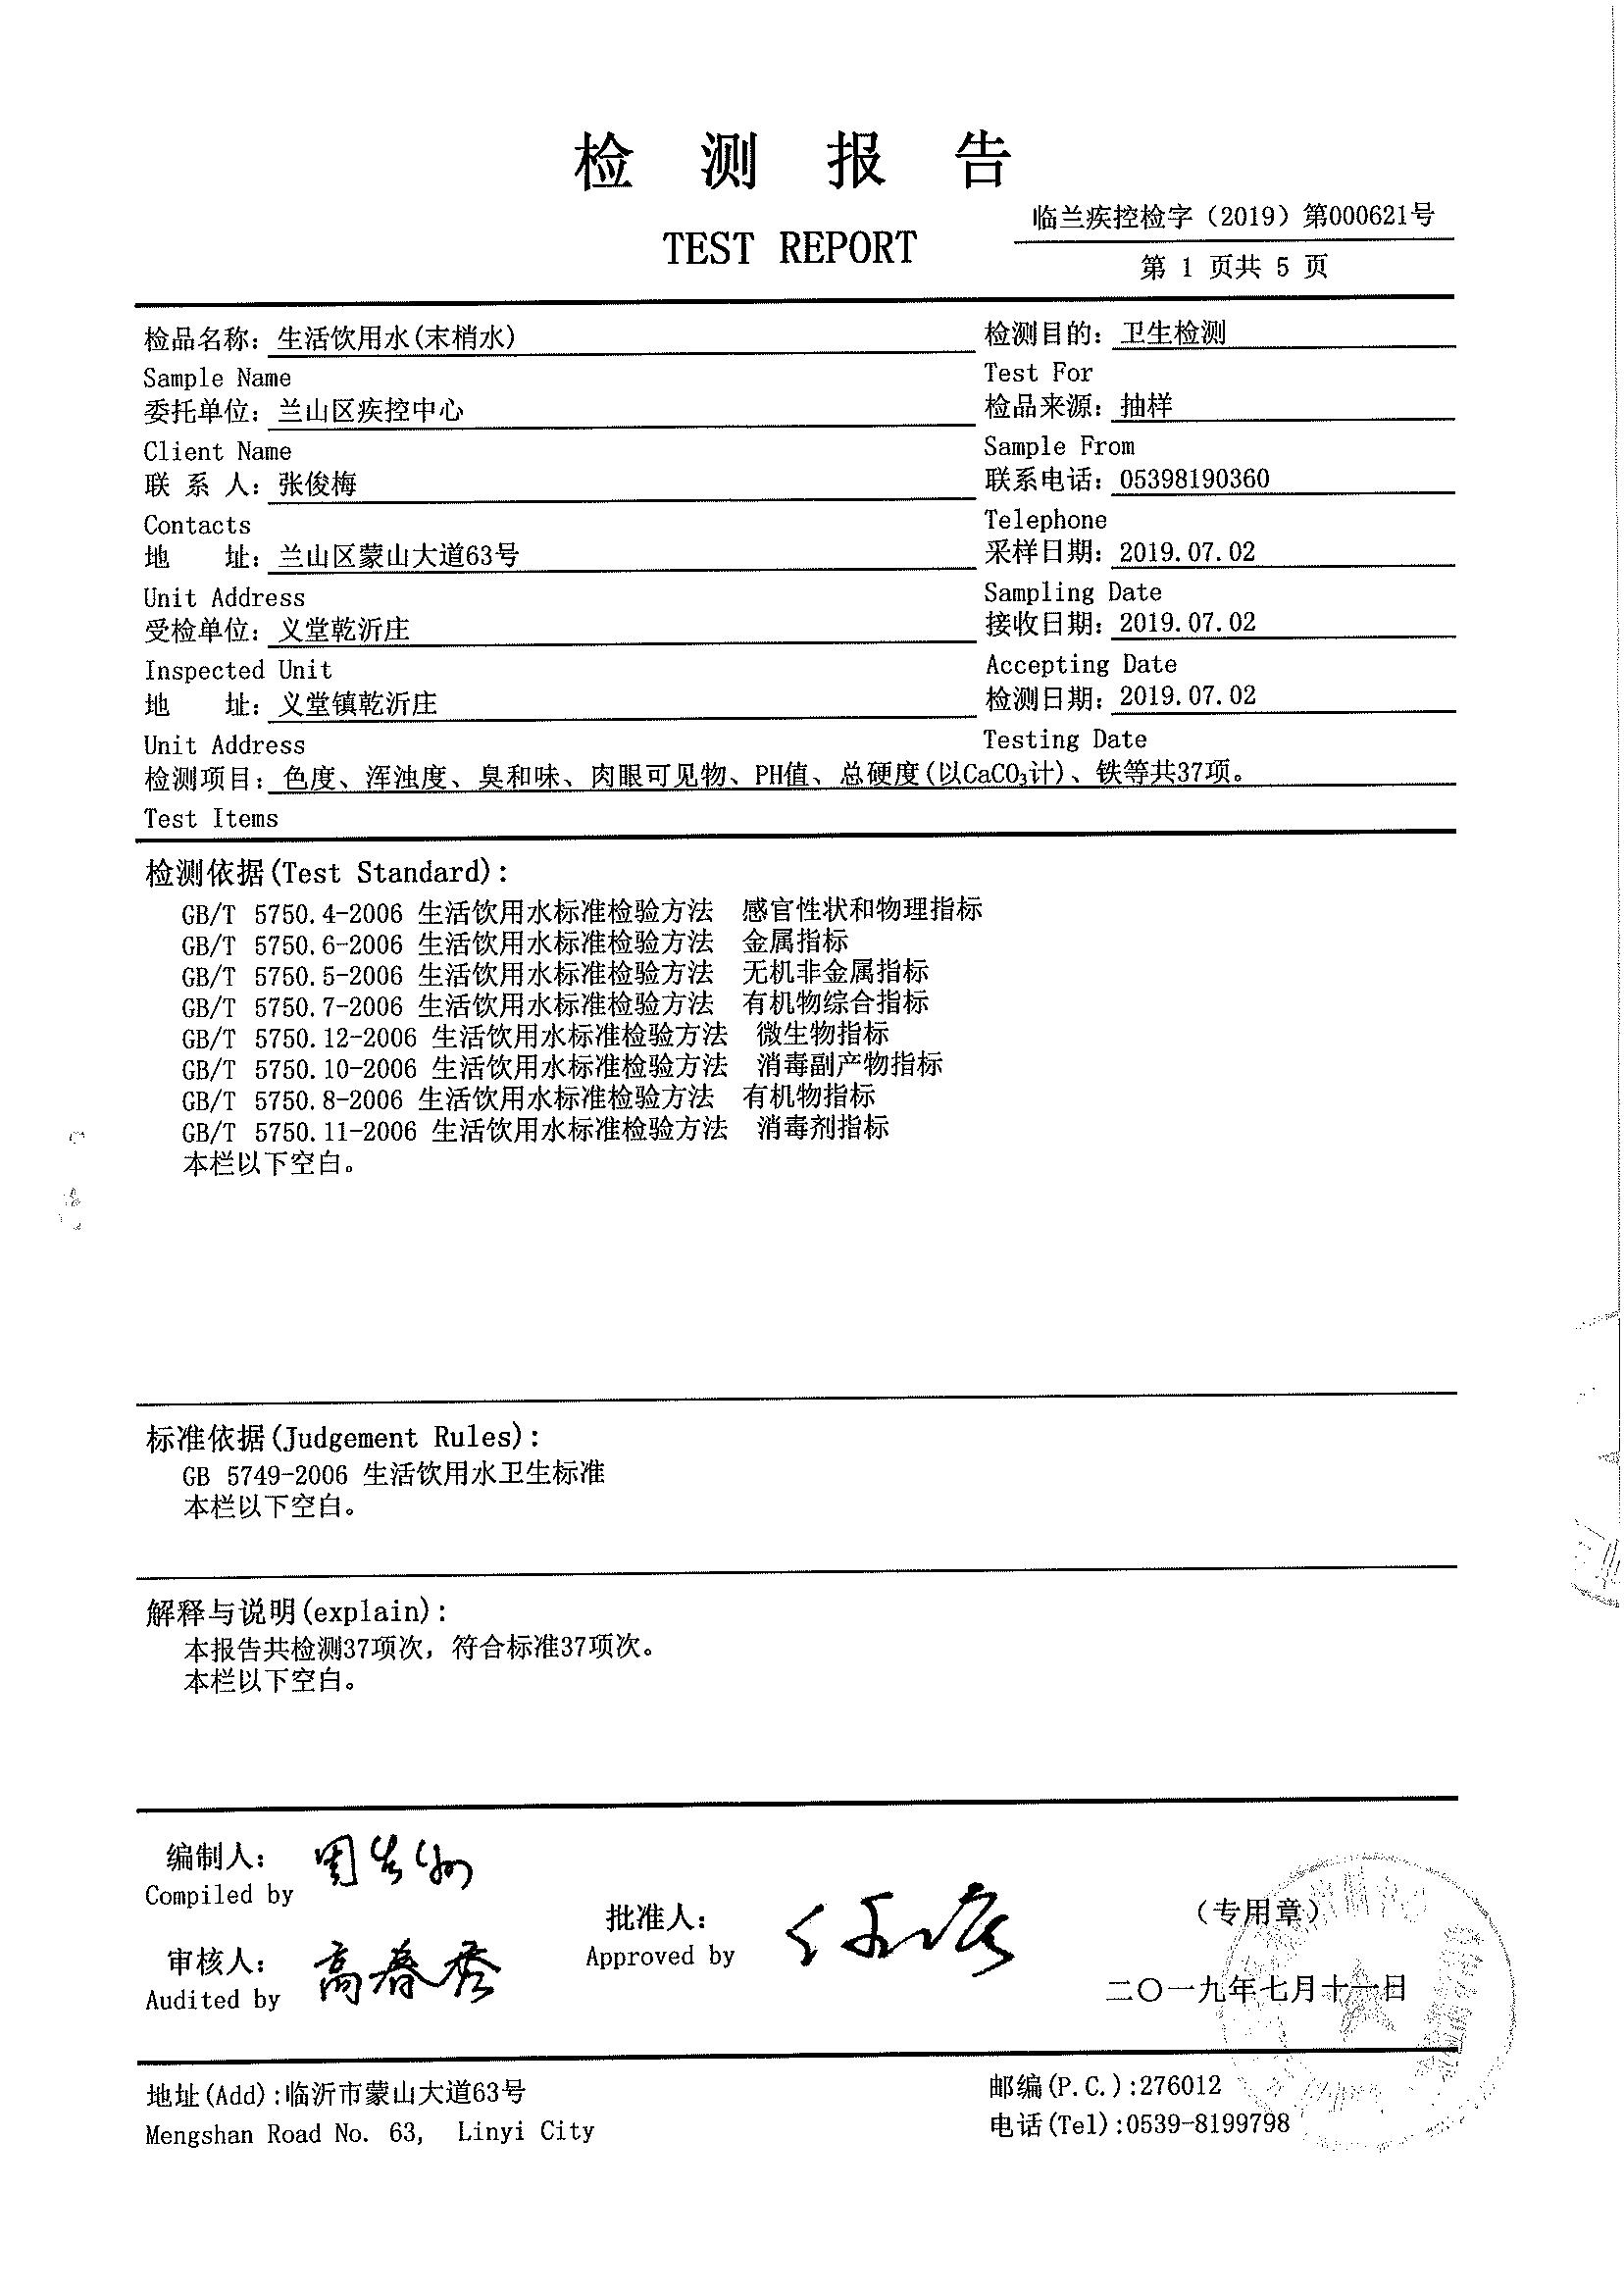 检 测 报 告
TEST REPORT
临兰疾控检字（2019）第000621号
第 1 页共 5 页
检品名称：生活饮用水(末梢水) 检测目的：卫生检测
Sample Name Test For
委托单位：兰山区疾控中心 检品来源：抽样
Client Name Sample From
联 系 人：张俊梅 联系电话：05398190360
Contacts Telephone
地 址：兰山区蒙山大道63号 采样日期：2019.07.02
Unit Address Sampling Date
受检单位：义堂乾沂庄 接收日期：2019.07.02
Inspected Unit Accepting Date
地 址：义堂镇乾沂庄 检测日期：2019.07.02
Unit Address Testing Date
检测项目：色度、浑浊度、臭和味、肉眼可见物、PH值、总硬度(以CaCO₃计)、铁等共37项。
Test Items
检测依据(Test Standard):
GB/T 5750.4-2006 生活饮用水标准检验方法 感官性状和物理指标
GB/T 5750.6-2006 生活饮用水标准检验方法 金属指标
GB/T 5750.5-2006 生活饮用水标准检验方法 无机非金属指标
GB/T 5750.7-2006 生活饮用水标准检验方法 有机物综合指标
GB/T 5750.12-2006 生活饮用水标准检验方法 微生物指标
GB/T 5750.10-2006 生活饮用水标准检验方法 消毒副产物指标
GB/T 5750.8-2006 生活饮用水标准检验方法 有机物指标
GB/T 5750.11-2006 生活饮用水标准检验方法 消毒剂指标
本栏以下空白。
标准依据(Judgement Rules):
GB 5749-2006 生活饮用水卫生标准
本栏以下空白。
解释与说明(explain):
本报告共检测37项次，符合标准37项次。
本栏以下空白。
编制人：
Compiled by
批准人：
Approved by
（专用章）
审核人：高春秀
Audited by
二〇一九年七月十一日
地址(Add):临沂市蒙山大道63号 邮编(P.C.):276012
Mengshan Road No. 63, Linyi City 电话(Tel):0539-8199798